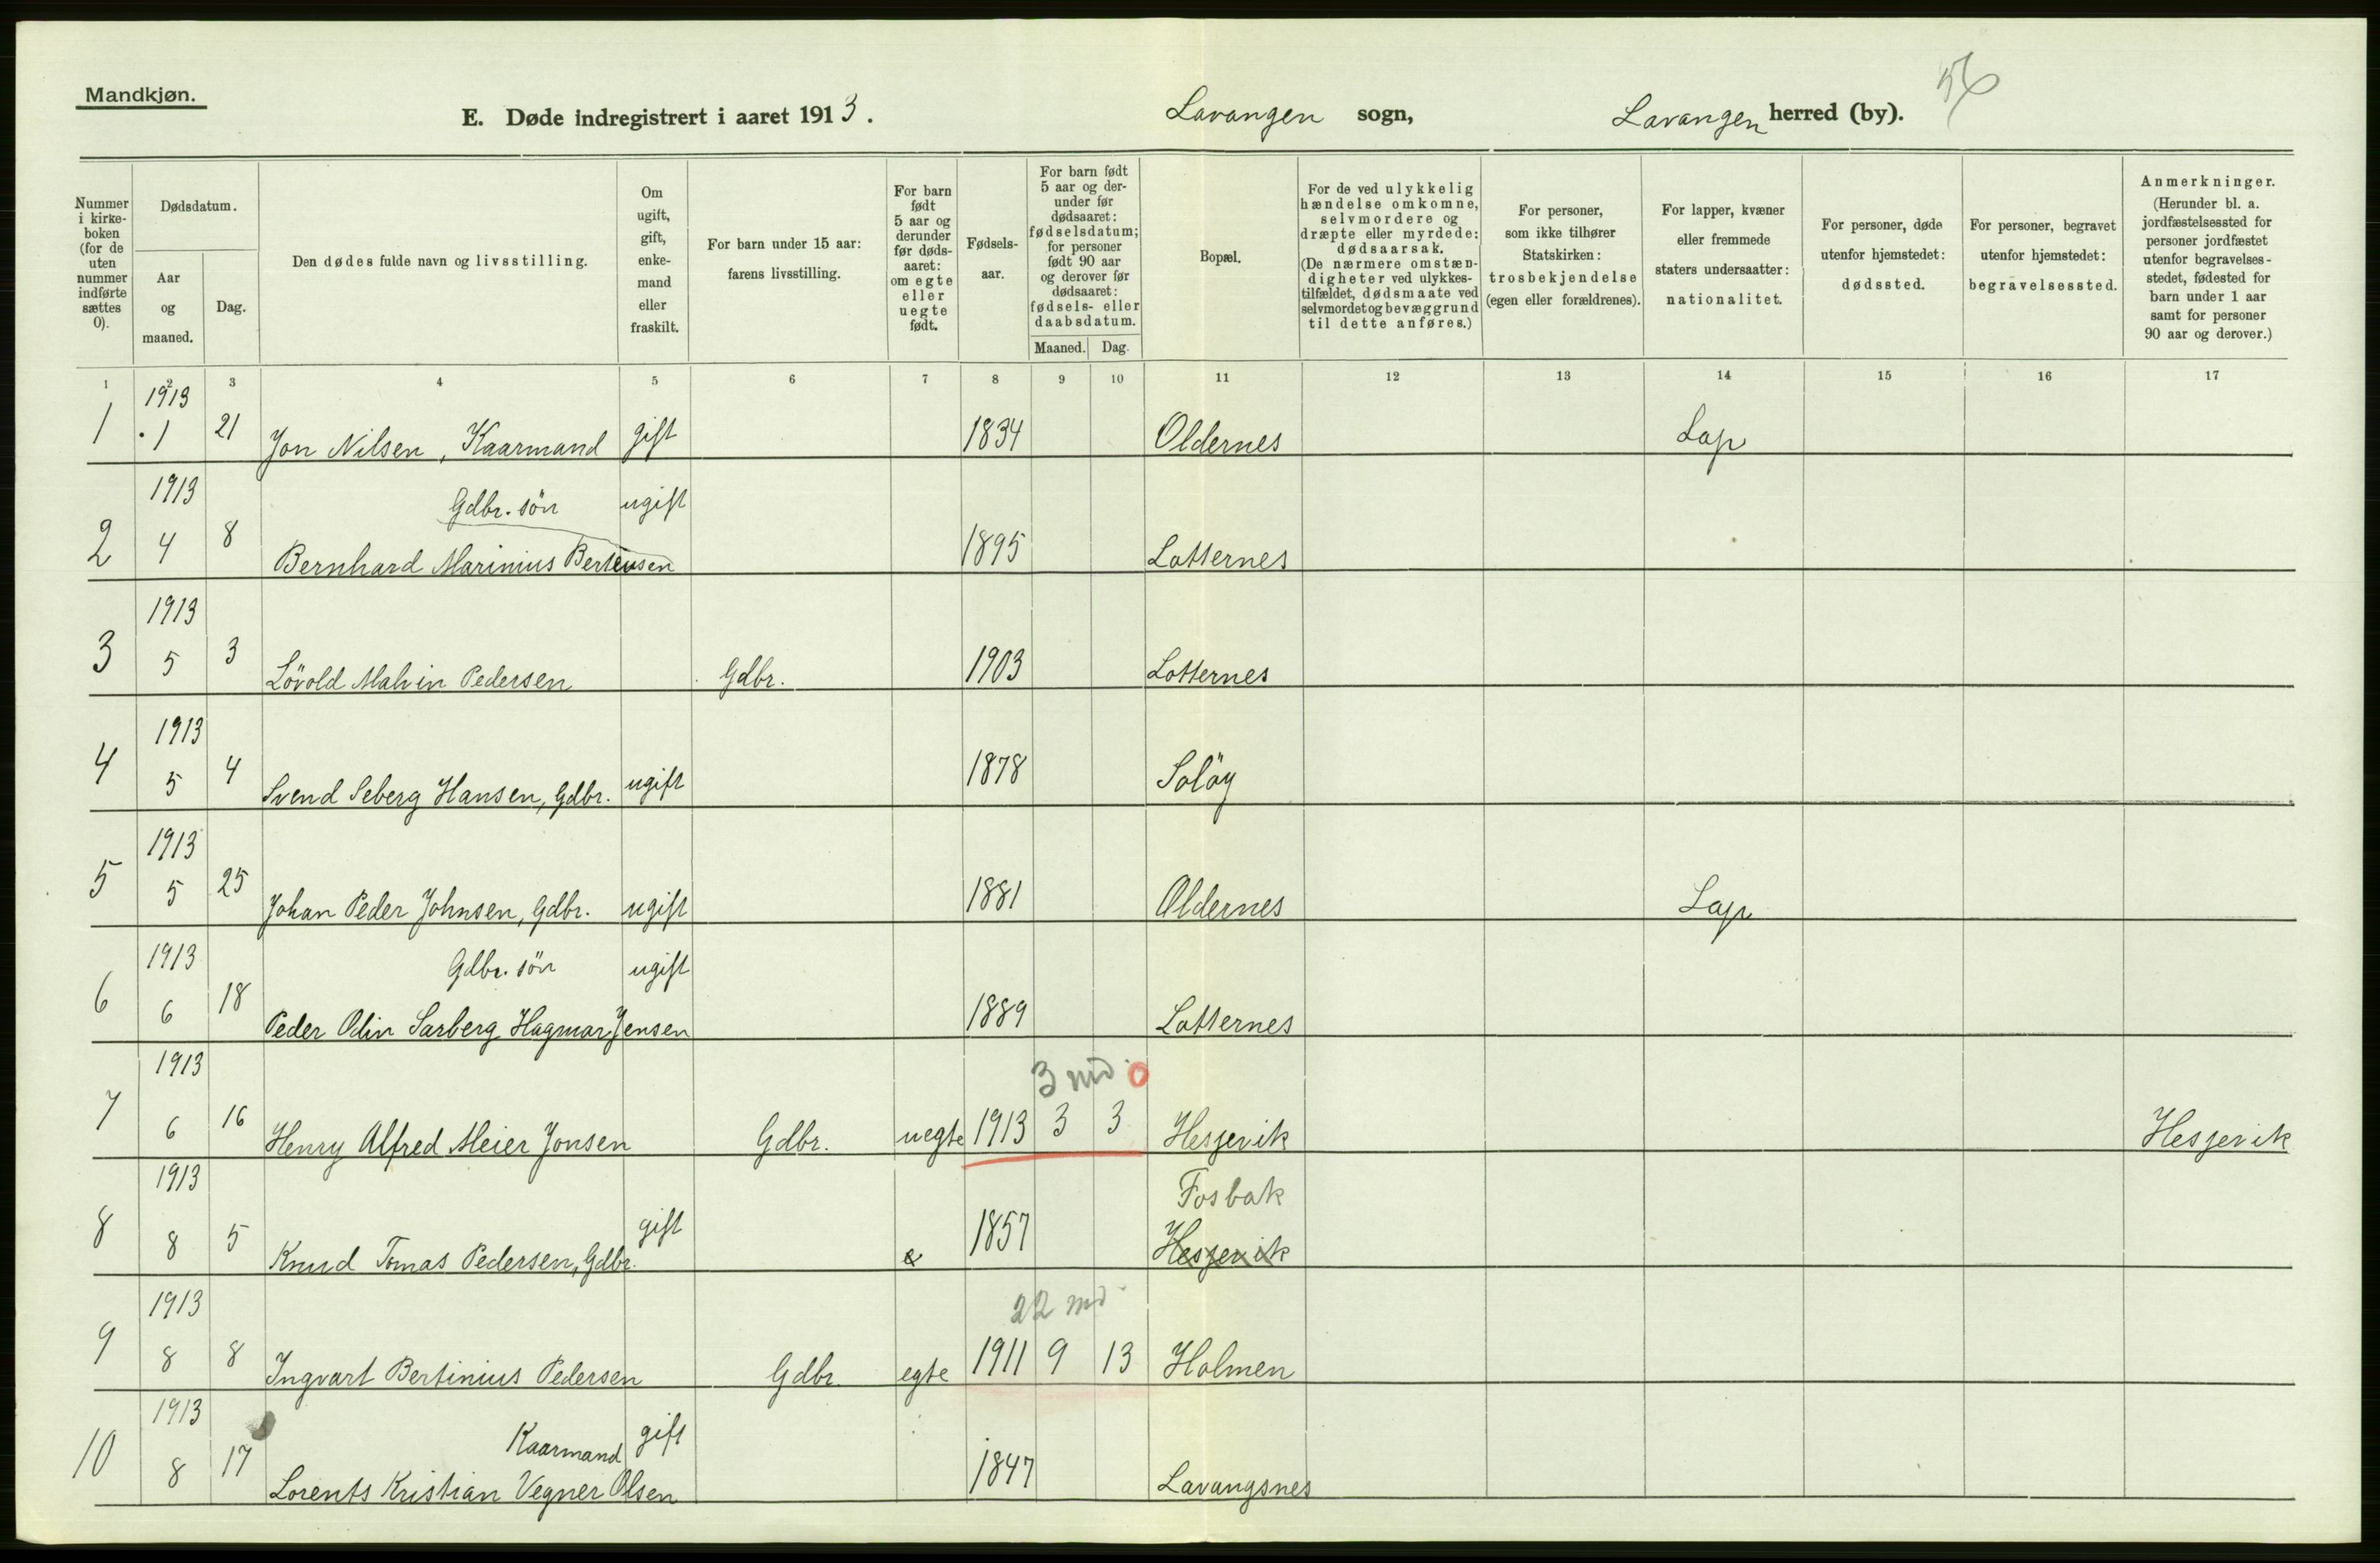 Mandkjøn.
56
E. Døde indregistrert i aaret 1913. Lavangen sogn, Lavangen herred (by).
Nummer i kirke-boken (for de uten nummer indførte sættes 0).
Dødsdatum.
Aar og maaned.
Dag.
Den dødes fulde navn og livsstilling.
Om ugift, gift, enke-mand eller fraskilt.
For barn under 15 aar: farens livsstilling.
For barn født 5 aar og derunder før døds-aaret: om egte eller uegte født.
Fødsels-aar.
For barn født 5 aar og der-under før dødsaaret: fødselsdatum; for personer født 90 aar og derover før dødsaaret: fødsels- eller daabsdatum.
Maaned. Dag.
Bopæl.
For de ved ulykkelig hændelse omkomne, selvmordere og dræpte eller myrdede: dødsaarsak. (De nærmere omstæn-digheter ved ulykkes-tilfældet, dødsmaate ved selvmordet og bevæggrund til dette anføres.)
For personer, som ikke tilhører Statskirken: trosbekjendelse (egen eller forældrenes).
For lapper, kvæner eller fremmede staters undersaatter: nationalitet.
For personer, døde utenfor hjemstedet: dødssted.
For personer, begravet utenfor hjemstedet: begravelsessted.
Anmerkninger. (Herunder bl. a. jordfæstelsessted for personer jordfæstet utenfor begravelses-stedet, fødested for barn under 1 aar samt for personer 90 aar og derover.)
1 2 3 4 5 6 7 8 9 10 11 12 13 14 15 16 17
1913
1 1 21 Jon Nilsen, Kaarmand gift 1834 Oldernes Lap
1913 Gdbr. sön ugift
2 4 8 Bernhard Marinius Berteusen 1895 Lotternes
1913
3 5 3 Lövold Malvin Pedersen Gdbr. 1903 Lotternes
1913
4 5 4 Svend Seberg Hansen, Gdbr. ugift 1878 Soløy
1913
5 5 25 Johan Peder Johnsen, Gdbr. ugift 1881 Oldernes Lap
1913 Gdbr. sön ugift
6 6 18 Peder Odin Sarberg Hagmar Jensen 1889 Lotternes
1913 3 md 0
7 6 16 Henry Alfred Meier Jonsen Gdbr. uegte 1913 3 3 Hesjevik Hesjevik
1913 Fosbak
8 8 5 Knud Tomas Pedersen, Gdbr. gift 1857 Hesjevik
1913 22 md
9 8 8 Ingvart Bertinius Pedersen Gdbr. egte 1911 9 13 Holmen
1913 Kaarmand gift
10 8 17 Lorents Kristian Vegner Olsen 1847 Lavangsnes